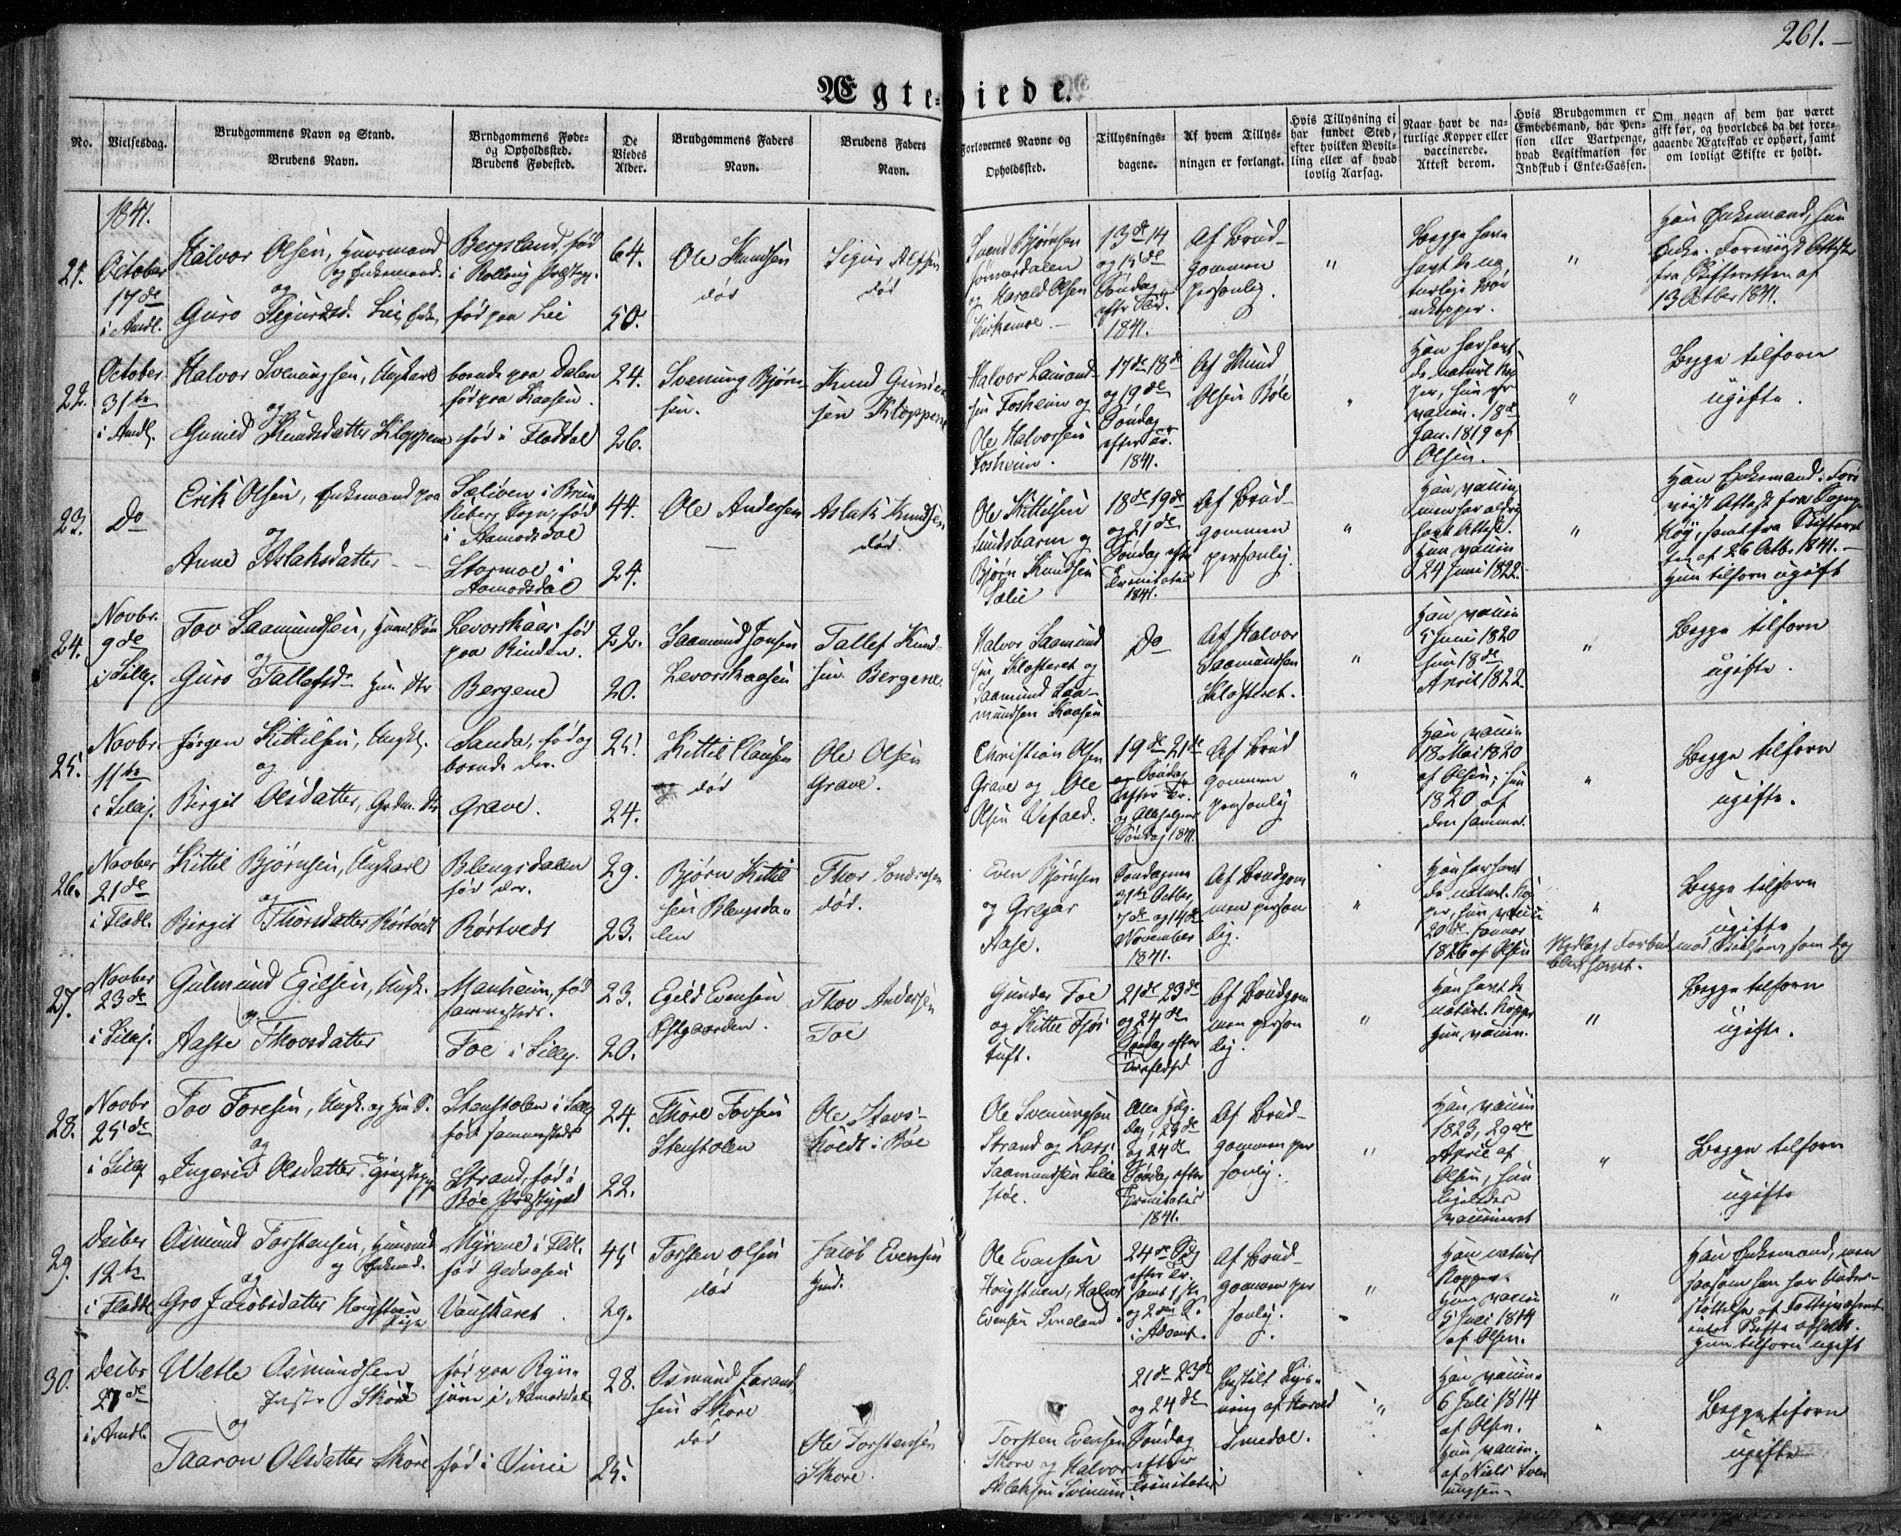 261.
Ægteviede.
No.
Vielsesdag.
Brudgommens Navn og Stand.
Brudens Navn.
Brudgommens Føde- og Opholdssted.
Brudens Fødested.
De Viedes Alder.
Brudgommens Faders Navn.
Brudens Faders Navn.
Forlovernes Navne og Opholdssted.
Tillysnings-dagene.
Af hvem Tillys-ningen er forlangt.
Hvis Tillysning ei har fundet Sted, efter hvilken Bevil-ling eller af hvad lovlig Aarsag.
Naar havt de na-turlige Kopper eller vaccinerede. Attest derom.
Hvis Brudgommen er Embedsmand, har Pen-sion eller Vartpenge, hvad Legitimation for Indskud i Enke-Cassen.
Om nogen af dem har været gift før, og hvorledes da det fore-gaaende Ægteskab er ophørt, samt om lovligt Skifte er holdt.
1841.
21.
October
17de
i Amdl.
Halvor Olsen, Huusmand
og Enkemand.
og
Guro Sigurdsd. Lie, Enke
Bergsland, født
i Rollaug Præstg.
født paa Lie
64.
50.
Ole Knudsen
død
Sigur
død
Svend Bjørnsen
og Harald Olsen
Kirkemoe.
13de 14
og 15de
Søndag
efter Tr.
1841.
Af Brud-
gommen
personlig.
"
Begge have
havt de na
turlige
"
Han Enkemand, hun
Enke.
fra Skifteretten af
13 Octber 1841.
22.
October
31te
i Amdl.
Halvor Svenungsen, Ungkarl
og
Gunild Knudsdatter Kloppene
boende paa Dalen
født paa Kaasen.
født i Flatdal
24.
26.
Svenung Bjørn-
sen.
Knud Gunder
sen Kloppene
Halvor Laurand-
sen Fosheim og
Ole Halvorsen
Fosheim.
17de 18de
og 19de
Søndag
efter Tr.
1841.
Af Knud
Olsen Bøle
"
Han har havt
de naturl. Kop
per, hun er
vaccin. 18de
Jan. 1819 af
Olsen.
"
Begge tilforn
ugifte.
23.
Do
Erik Olsen, Enkemand paa
og
Anne Aslaksdatter
i Brun
keberg Sogn, født
i Aamodsdal
Stormoe i
Aamodsdal
44.
24.
Ole Andersen
Aslak Knudsen
død.
Ole Kittilsen
Sundsbarm og
Bjørn Knudsen
18de 19de
og 21de
Søndag efter
Trinitatis
1841.
Af Brud-
gommen
personlig.
"
Han vaccin.
men har aldrig
havt Attest.
Hun vaccin
24 Juni 1822.
"
Han Enkemand.
Attest fra
samt fra Skifteret
ten af 26 Octbr. 1841.
Hun tilforn ugift
24.
Novbr.
9de
i Sillej.
Tov Saamundsen,
og
Guro Tallefsd.
Levorskaas født
paa Rinden.
Bergene
22.
20.
Saamund Jonsen
Levorskaasen
Tallef Knud-
sen Bergene
Halvor Saamund
sen Klosteret og
Saamund Saa-
mundsen Kaasen
Do
Af Halvor
Saamundsen
Klosteret.
"
Han vaccin
5 Juni 1820
hun 18de
April 1822
"
Begge tilforn
ugifte.
25.
Novbr.
11te
i Sillej.
Jørgen Kittilsen, Ungk.
og
Birgit Olsdatter, Grdm. Dtr
Sanda, født og
boende der.
Grave.
25.
24.
Kittil Clausen
død
Ole Olsen
Grave.
Christian Olsen
Grave og Ole
Olsen Vefald.
19de 21de
Søndag
efter Tr.
og Allehelgens
Søndag 1841.
Af Brud
gommen
personlig
"
Han vaccin
18 Mai 1820
af Olsen; hun
1820 af
den samme.
"
Begge tilforn
ugifte.
26.
Novber
21de
i Flatdl.
Kittil Bjørnsen, Ungkarl
og
Birgit Thorsdatter Rörtvedt
Blengsdalen
født der.
Rörtvedt
29.
23.
Bjørn Kittil
sen Blengsda-
len
Thor Sondresen
død.
Even Bjørnsen
og Gregar
Aase.
Søndagene
31te October
7de og 14de
November
1841.
Af Brudgom
men person
lig.
"
Han har havt
de naturl. Kop
per, hun vaccin
20de Januar
1826 af Olsen
"
Begge tilforn
ugifte
Nedlagt Forbud mod Vielsen, som dog
blev hævet.
27.
Novber
23de
i Sillej.
Gulmund Egilsen, Ungk.
og
Aaste Thovsdatter
Manheim, født
sammesteds.
Toe i Sillj.
23.
20.
Egild Evensen
Østgaarden.
Thov Andersen
Toe
Gunder Toe
og Kittil Fjös
tuft.
21de 23de
og 24de
Søndag efter
Trefoldhed
Af Brudgom
men person
lig.
"
Han havt de
naturl. Kopper
hun vaccin.
"
Begge tilforn
ugifte.
28.
Novbr
25de
i Sillej
Tov Toresen, Ungk. og
og
Ingerid Olsdatter
Stenstolen i Sillj
født sammesteds
Strand, født i
Bøe Præstegjeld
24.
22.
Thore Tovsen
Stenstolen
Ole Stavs-
holdt i Bøe
Ole Svenungsen
Strand og Lars
Saamundsen Lille
støe.
Alle Helg.
Dag, 23de
og 24de
Søndag efter
Trinitatis
1841.
Af Brud-
gommen per
sonlig.
"
Han vaccin
1823, 29de
April af
Olsen, hun
ligeledes
vaccineret
"
Begge tilforn
ugifte
29.
Decber
12te
i Flatdl
Osmund Torstensen, Huusmd
og Enkemd.
og
Gro Jacobsdatter
Pige
Myrene i Flatl.
født
Vaaskaret
45
29.
Torsten Olsen
død
Jacob Evensen
Hmd.
Ole Evensen
Halvor
Evensen
24de Sdg
efter Tr.
samt 1ste
og 2den S.
i Advent.
Af Brud-
gommen per
sonlig.
"
Han naturl
Kopper.
Hun vaccin
5 Juli 1814
af Olsen.
"
Han Enkemand, men
saasom han har Under-
støttelse af Fattigvæsenet
intet Skifte afholdt.
Hun tilforn ugift
30.
Decbr
27de
i Amdl.
Wetle Osmundsen
Skore
og
Taaron Olsdatter Skore
født paa Ryn-
juve i Aamodsdal
født i Vinie
28.
25.
Osmund Tarand
sen Skore
død
Ole Torstensen
Skore.
Torsten Evensen
Skore og Halvor
Aslaksen
21de 23de
og 24de
Søndag
efter
Trinitatis
af Harald
Smedal.
"
Han vaccin.
6 Juli 1814
af Olsen.
Hun vaccin.
af Niels Sven
ungsen.
Begge tilforn
ugifte